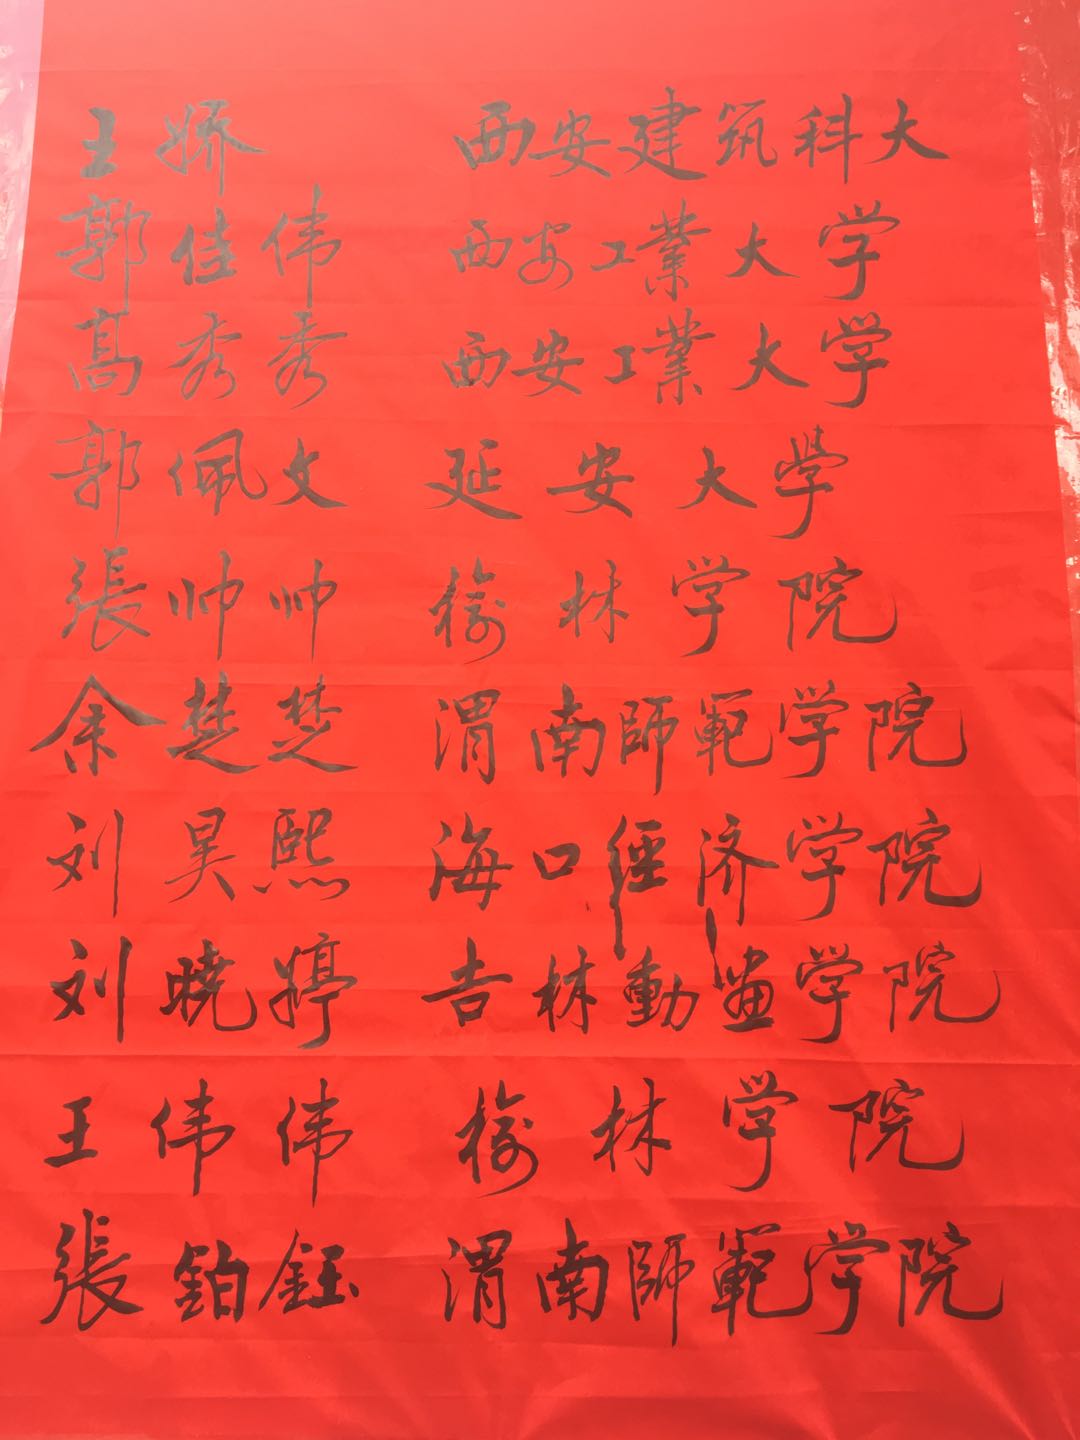 王娇 西安建筑科大
郭佳伟 西安工業大学
高秀秀 西安工業大学
郭佩文 延安大學
張帅帅 榆林学院
余楚楚 渭南師範学院
刘昊熙 海口経济学院
刘晓婷 吉林動畫学院
王伟伟 榆林学院
張鉑鈺 渭南師範学院